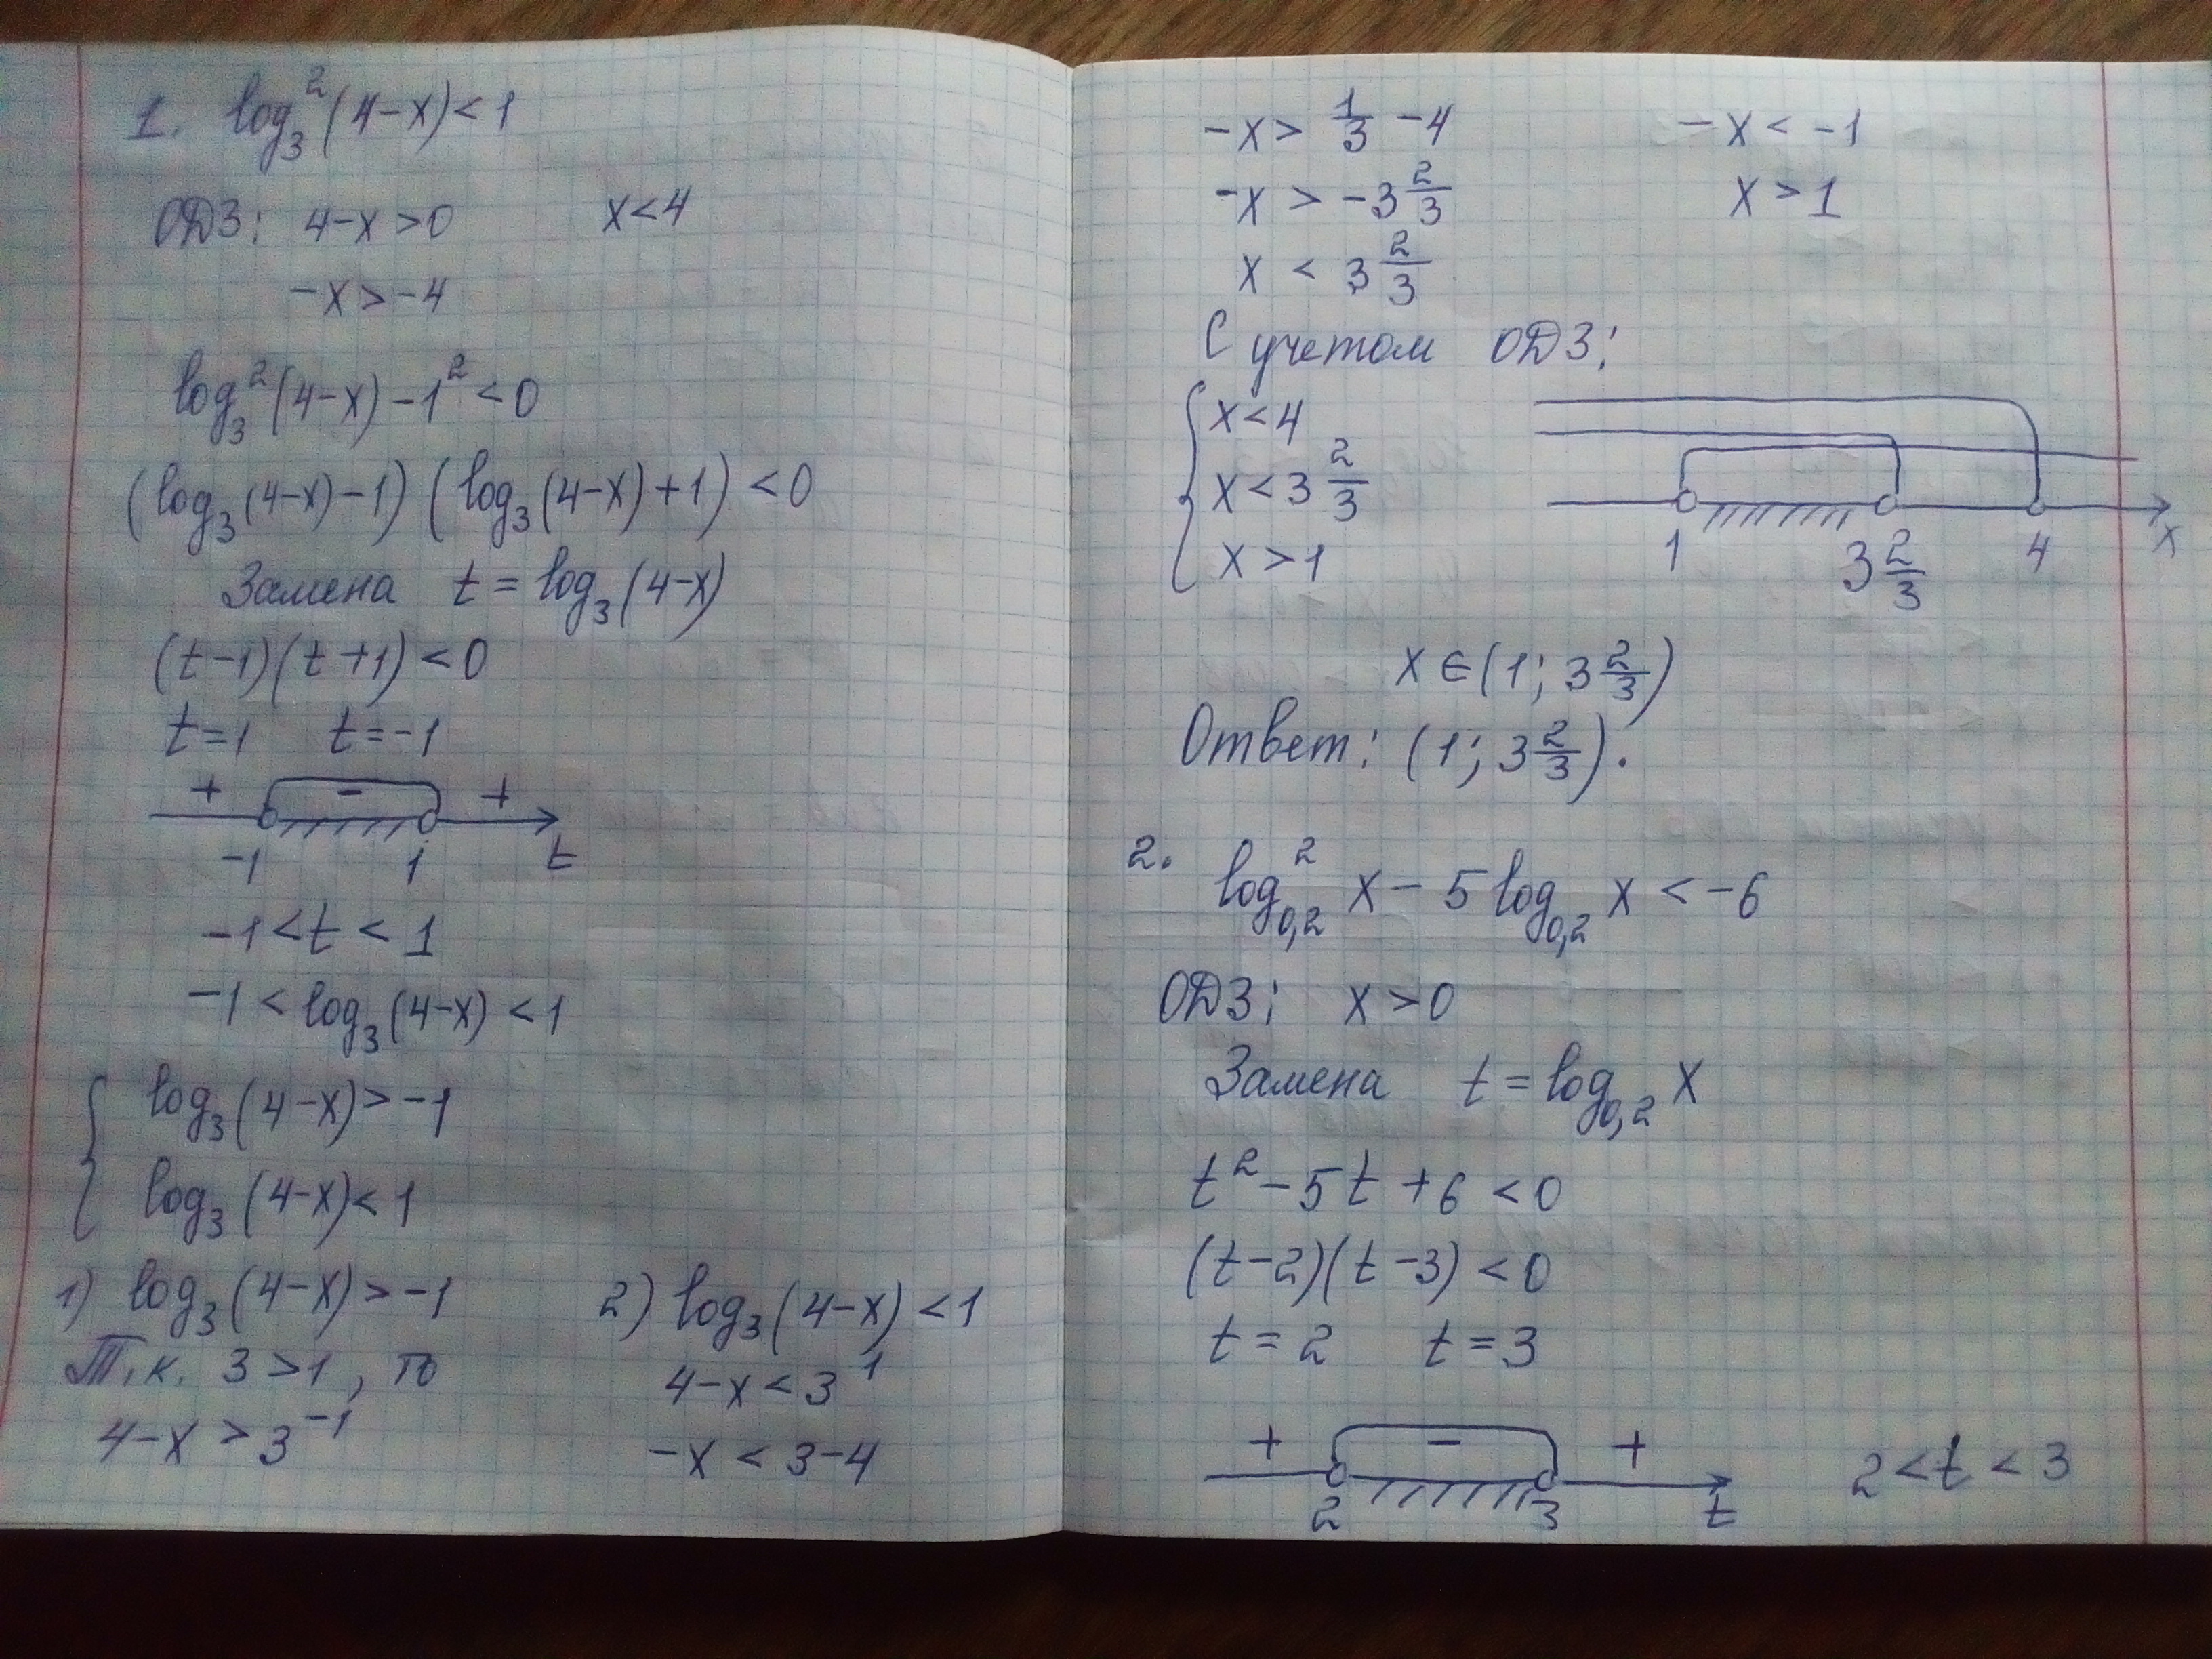 1. log₃²(4-x)<1
ОДЗ: 4-x>0 x<4
-x>-4
log₃²(4-x)-1²<0
(log₃(4-x)-1)(log₃(4-x)+1)<0
Замена t=log₃(4-x)
(t-1)(t+1)<0
t=1 t=-1
+ - +
-1 1 t
-1<t<1
-1<log₃(4-x)<1
{ log₃(4-x)>-1
log₃(4-x)<1
1) log₃(4-x)>-1 2) log₃(4-x)<1
Т.к. 3>1, то 4-x<3¹
4-x>3⁻¹ -x<3-4
-x> 1/3 -4 -x<-1
-x>-3 2/3 x>1
x<3 2/3
С учетом ОДЗ:
{ x<4
x<3 2/3
x>1
1 3 2/3 4 x
x∈(1; 3 2/3)
Ответ: (1; 3 2/3).
2. log₀,₂² x - 5 log₀,₂ x < -6
ОДЗ: x>0
Замена t=log₀,₂ x
t²-5t+6<0
(t-2)(t-3)<0
t=2 t=3
+ - + 2<t<3
2 3 t